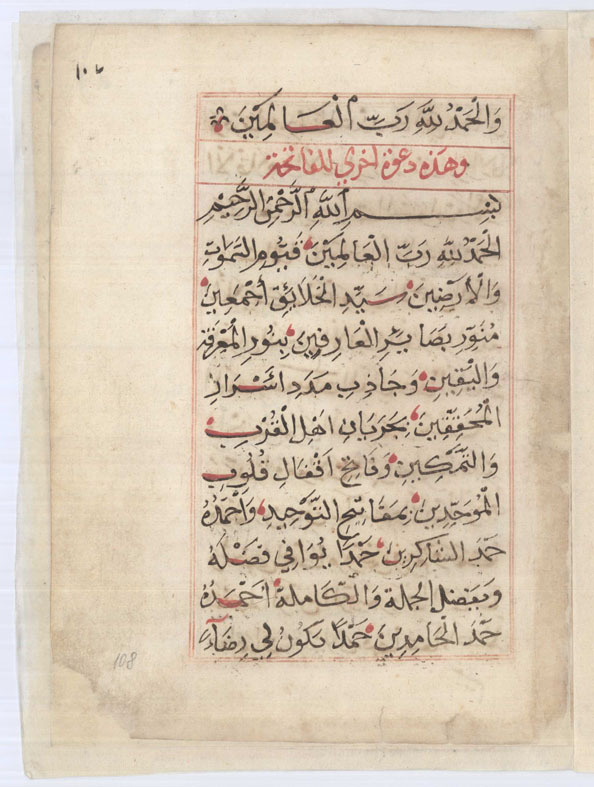 ١٠٦
وَالْحَمْدُ لِلَّهِ رَبِّ الْعَالَمِينَ
وهذه دعوة اخري للفاتحة
بسم الله الرحمن الرحيم
الحمد لله رب العالمين قيوم السموات
والارضين سيد الخلائق أجمعين
منور بصاير العارفين بنور المعرفة
واليقين وجاذب مدد اسرار
المحققين بجريان اهل القرب
والتمكين وفاتح اقفال قلوب
الموحدين بمفاتيح التوحيد واحمده
حمد الشاكرين حمدا يوافي فضله
الجملة والكاملة احمده
حمد الحامدين حمدا يكون لي رضاء
108